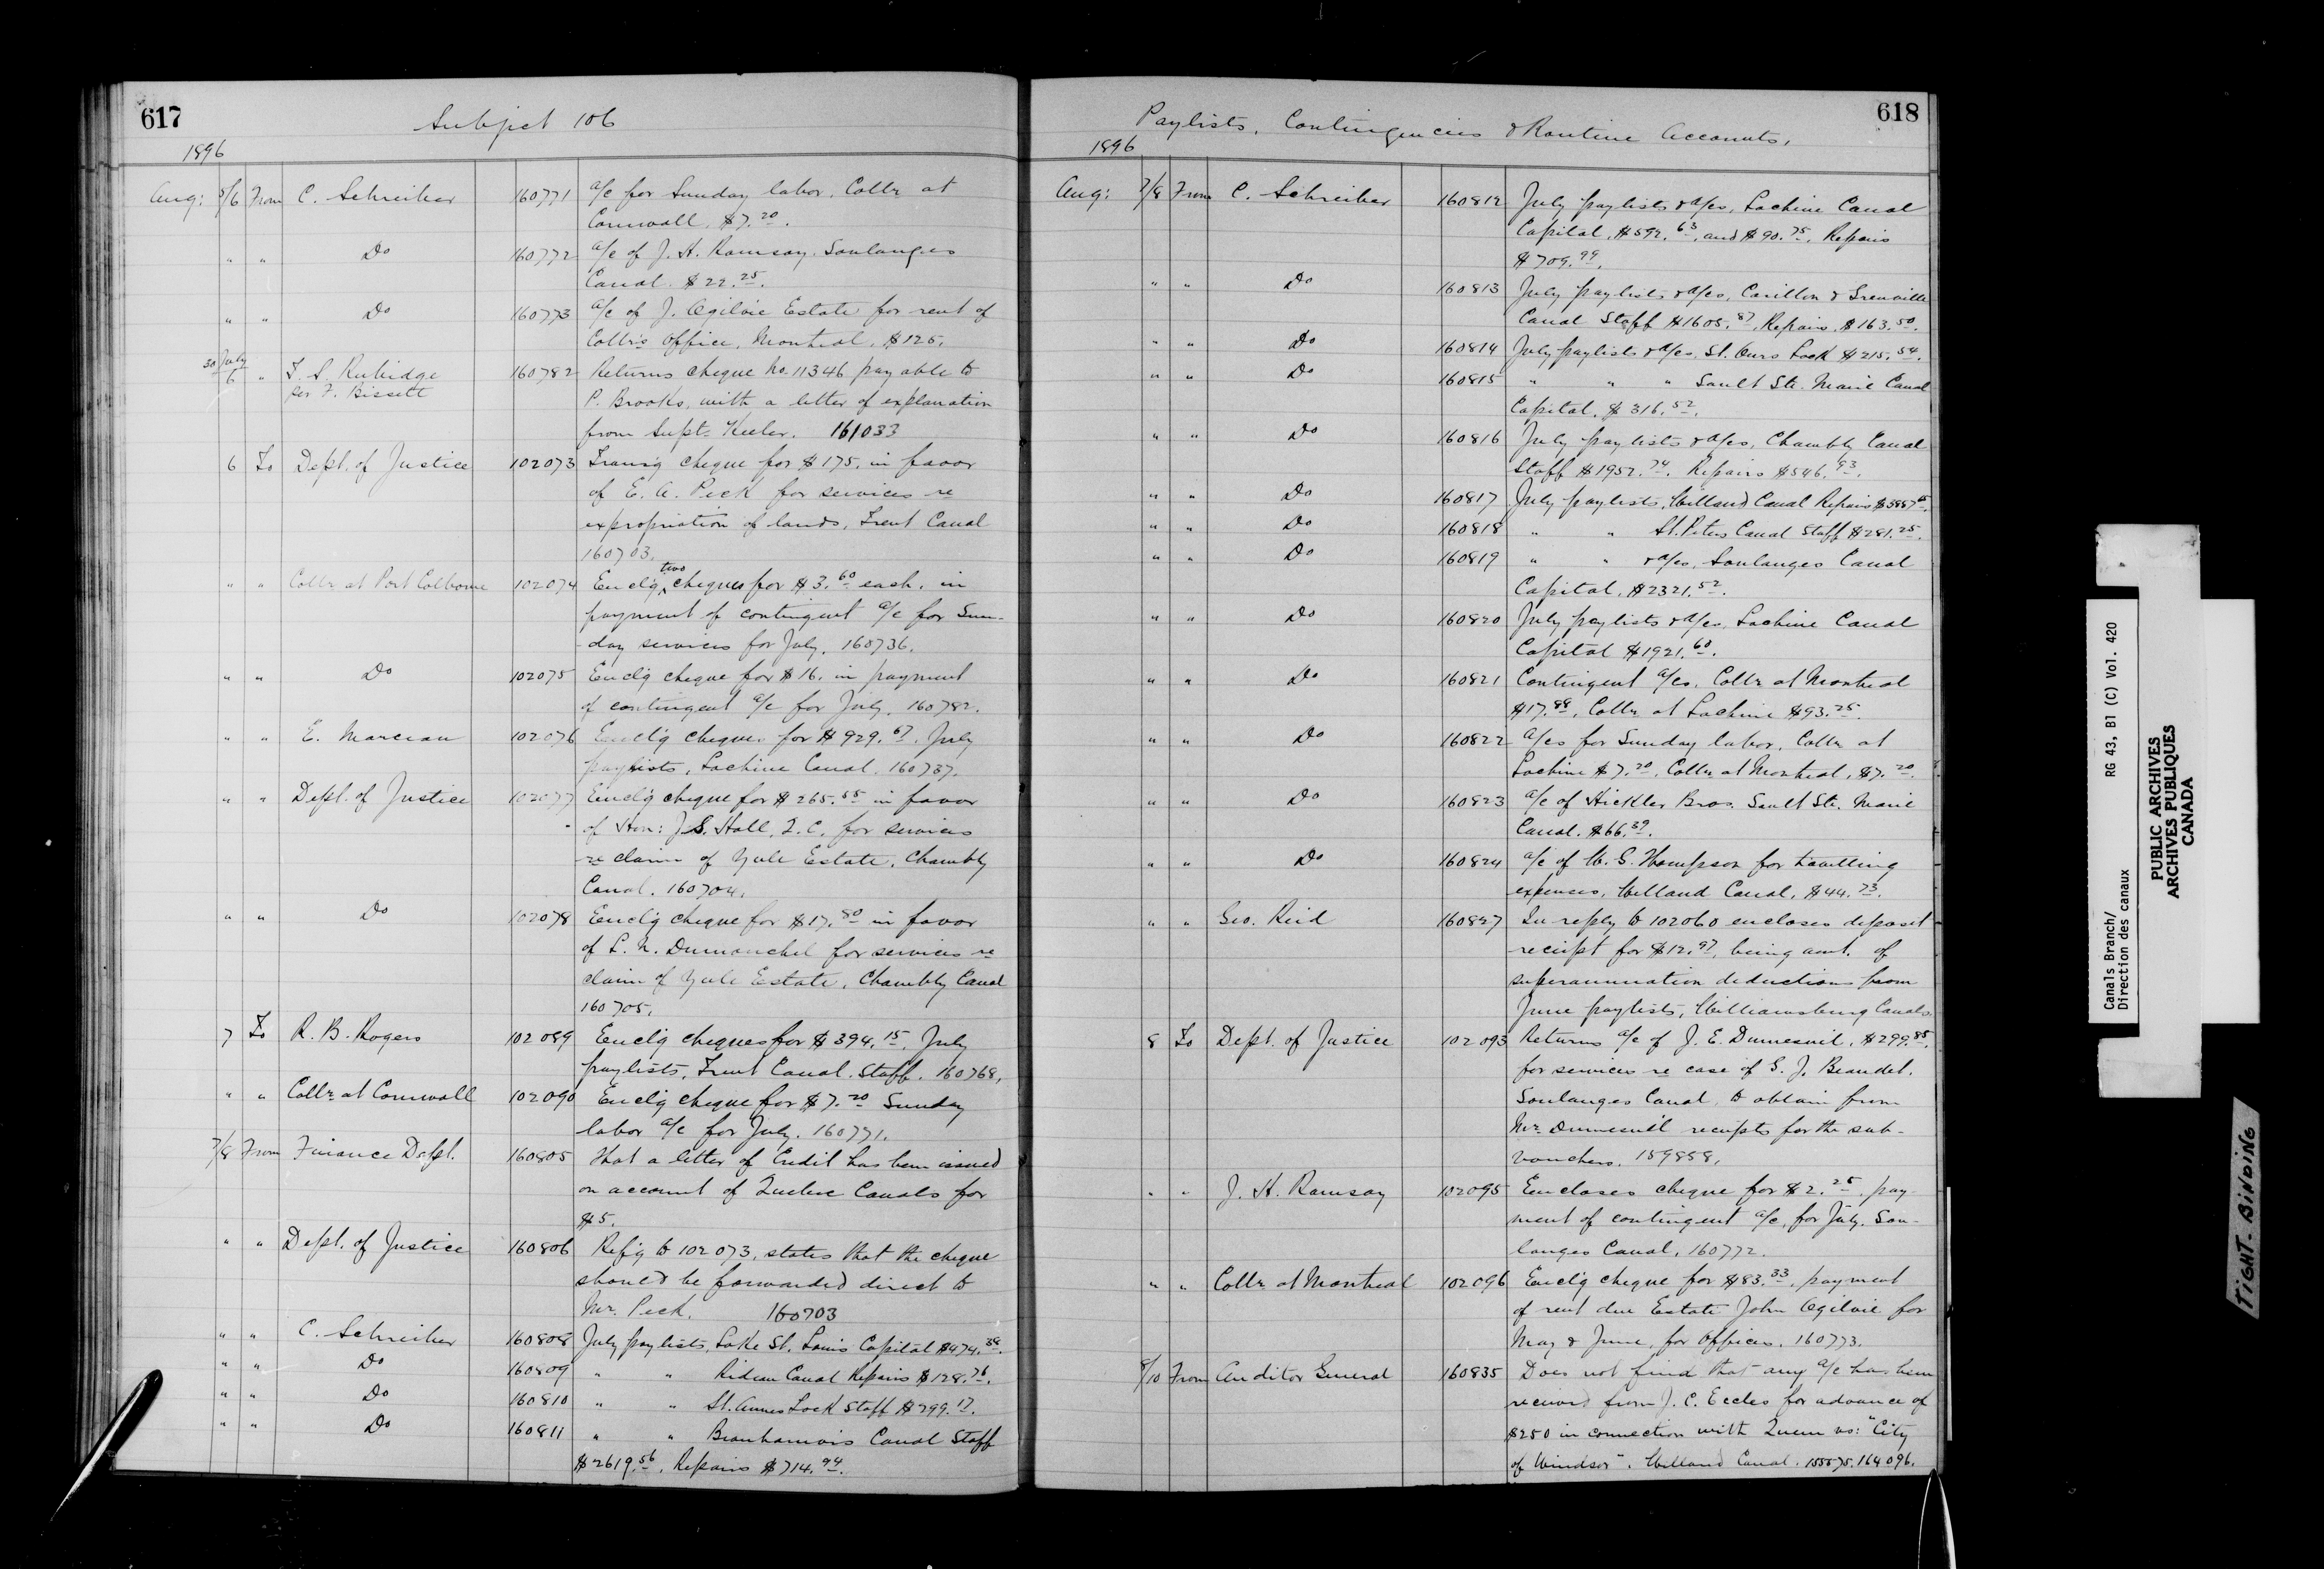 617
Subject 106
1896
Aug: 5/6 From C. Schreiber 160771 a/c for Sunday labor, Collr at
Cornwall, $7.20.
" " Do 160772 a/c of J. H. Ramsay, Soulanges
Canal. $22.25.
" " Do 160773 a/c of J. Ogilvie Estate for rent of
Collr's Office, Montreal, $125.
30 July/6 " T. S. Rubidge 160782 Returns cheque No. 11346 payable to
per F. Bissett P. Brooks, with a letter of explanation
from Supt. Keeler. 161033
6 To Dept. of Justice 102073 Transg cheque for $175. in favor
of E. A. Peck for services re
expropriation of lands, Trent Canal
160703.
" " Collr at Port Colborne 102074 Enclg two cheques for $3.60 each, in
payment of contingent a/c for Sun-
-day services for July. 160736.
" " Do 102075 Enclg cheque for $16. in payment
of contingent a/c for July. 160782.
" " E. Marceau 102076 Enclg cheques for $929.67. July
paylists, Lachine Canal. 160737.
" " Dept. of Justice 102077 Enclg cheque for $265.55 in favor
of Hon: J. S. Hall, Q.C. for services
re claim of Yule Estate, Chambly
Canal. 160704.
" " Do 102078 Enclg cheque for $17.80 in favor
of L. N. Dumouchel for services re
claim of Yule Estate, Chambly Canal
160705.
7 To R. B. Rogers 102089 Enclg cheques for $394.15. July
paylists, Trent Canal. Staff. 160768.
" " Collr at Cornwall 102090 Enclg cheque for $7.20 Sunday
labor a/c for July. 160771.
7/8 From Finance Dept. 160805 That a letter of Credit has been issued
on account of Quebec Canals for
$5.
" " Dept. of Justice 160806 Refg to 102073, states that the cheque
should be forwarded direct to
Mr. Peck. 160703
" " C. Schreiber 160808 July paylists, Lake St. Louis Capital $474.38.
" " Do 160809 " " Rideau Canal Repairs $128.76.
" " Do 160810 " " St. Annes Lock Staff $299.17.
" " Do 160811 " " Beauharnois Canal Staff
$2619.56, Repairs $714.94.
618
Paylists, Contingencies & Routine Accounts,
1896
Aug: 7/8 From C. Schreiber 160812 July paylists & a/cs, Lachine Canal
Capital, $592.63, and $90.75, Repairs
$709.99.
" " Do 160813 July paylists & a/cs, Carillon & Grenville
Canal Staff $1605.87, Repairs, $163.50.
" " Do 160814 July paylists & a/cs, St. Ours Lock $215.54.
" " Do 160815 " " " Sault Ste. Marie Canal
Capital, $316.52.
" " Do 160816 July paylists & a/cs, Chambly Canal
Staff $1952.74. Repairs $546.93.
" " Do 160817 July paylists, Welland Canal Repairs
" " Do 160818 " " St. Peters Canal Staff $281.25.
" " Do 160819 " " & a/cs, Soulanges Canal
Capital, $2321.52.
" " Do 160820 July paylists & a/cs, Lachine Canal
Capital $1921.60.
" " Do 160821 Contingent a/cs, Collr at Montreal
$17.88, Collr at Lachine $93.25.
" " Do 160822 a/cs for Sunday labor, Collr at
Lachine $7.20, Collr at Montreal, $7.20.
" " Do 160823 a/c of Hickler Bros. Sault Ste. Marie
Canal. $66.39.
" " Do 160824 a/c of W. G. Thompson for travelling
expenses, Welland Canal, $44.73.
" " Geo. Reid 160827 In reply to 102060 encloses deposit
receipt for $12.97, being amt. of
superannuation deductions from
June paylists, Williamsburg Canals.
8 To Dept. of Justice 102093 Returns a/c of J. E. Dumesnil, $299.85,
for services re case of G. J. Beaudet.
Soulanges Canal, to obtain from
Mr. Dumesnil receipts for the sub-
vouchers. 159858.
" " J. H. Ramsay 102095 Encloses cheque for $2.25, pay-
ment of contingent a/c, for July. Sou-
langes Canal, 160772.
" " Collr at Montreal 102096 Enclg cheque for $83.33, payment
of rent due Estate John Ogilvie for
May & June, for Offices. 160773.
8/10 From Auditor General 160835 Does not find that any a/c has been
received from J. C. Eccles for advance of
$250 in connection with Queen vs: "City
of Windsor". Welland Canal. 155575. 164096.
Canals Branch/ RG 43, B1 (C) Vol. 420
Direction des canaux
PUBLIC ARCHIVES
ARCHIVES PUBLIQUES
CANADA
TIGHT BINDING